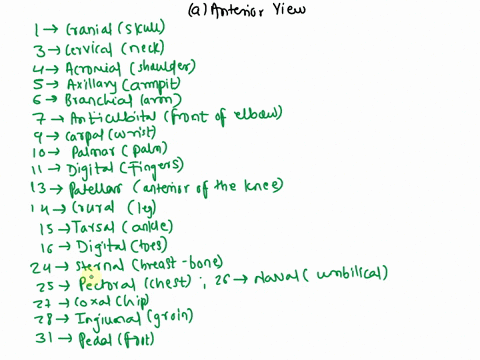 (a) Anterior View
1 → Cranial (skull)
3 → Cervical (neck)
4 → Acromial (shoulder)
5 → Axillary (armpit)
6 → Branchial (arm)
7 → Anticubital (front of elbow)
9 → carpal (wrist)
10 → Palmar (palm)
11 → Digital (Fingers)
13 → Patellar (anterior of the knee)
14 → Crural (leg)
15 → Tarsal (ankle)
16 → Digital (toes)
24 → Sternal (breast-bone)
25 → Pectoral (chest) ; 26 → Naval (umbilical)
27 → Coxal (hip)
28 → Inguinal (groin)
31 → Pedal (foot)